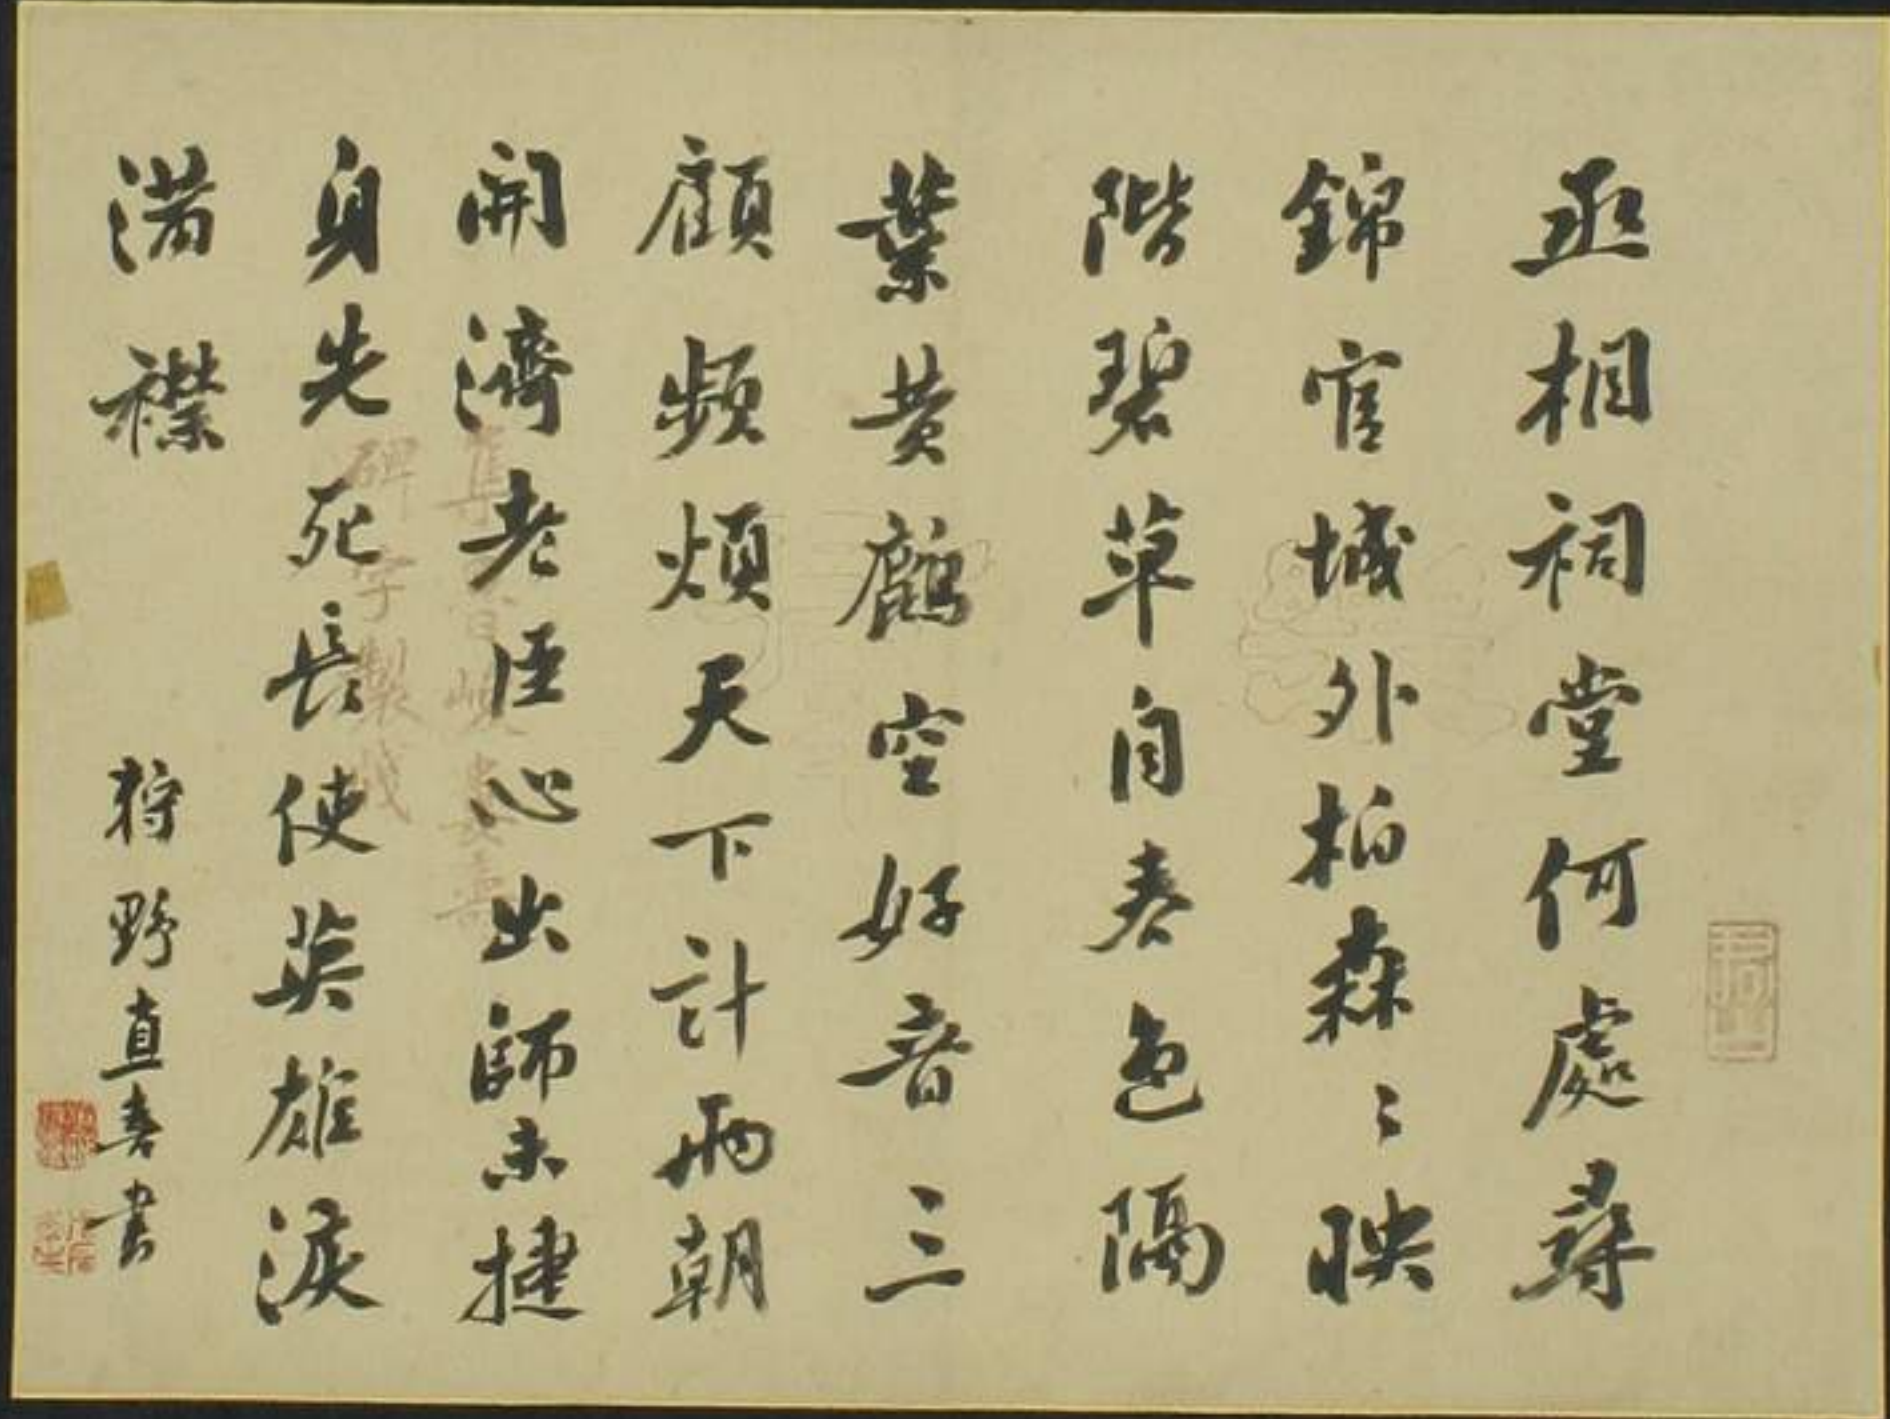 丞相祠堂何處尋
錦官城外柏森〻映
階碧草自春色隔
葉黄鸝空好音三
顧頻煩天下計兩朝
開濟老臣心出師未捷
身先死長使英雄淚
滿襟
狩野直喜書